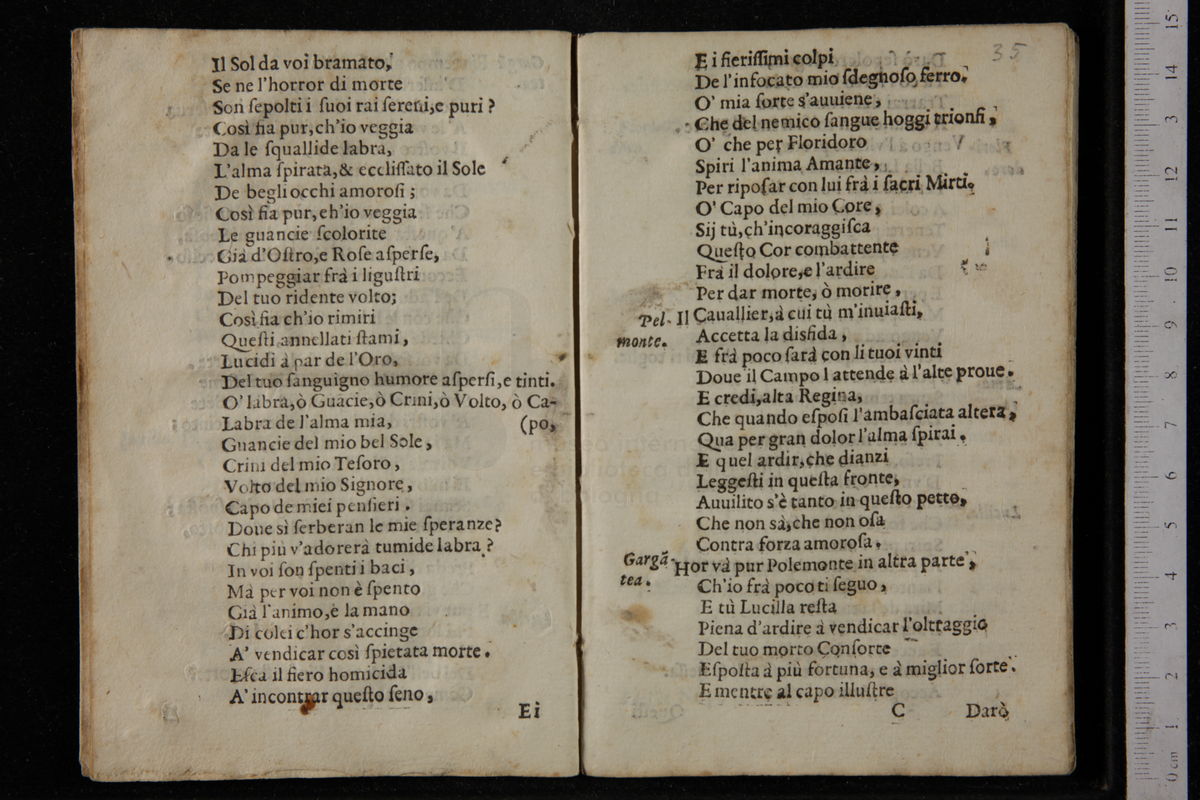 Il Sol da voi bramato,
Se ne l'horror di morte
Son ſepolti i ſuoi rai ſereni,e puri ?
Così fia pur,ch'io veggia
Da le ſquallide labra,
L'alma ſpirata,& eccliſſato il Sole
De begli occhi amoroſi ;
Così fia pur,ch'io veggia
Le guancie ſcolorite
Già d'Oſtro,e Roſe aſperſe,
Pompeggiar frà i liguſtri
Del tuo ridente volto;
Così fia ch'io rimiri
Queſti annellati ſtami,
Lucidi à par de l'Oro,
Del tuo ſanguigno humore aſperſi,e tinti.
O' labra,ò Guácie,ò Crini,ò Volto, ò Ca-
Labra de l'alma mia, (po,
Guancie del mio bel Sole,
Crini del mio Teſoro,
Volto del mio Signore,
Capo de miei penſieri.
Doue sì ſerberan le mie ſperanze?
Chi più v'adorerà tumide labra?
In voi ſon ſpenti i baci,
Mà per voi non è ſpento
Già l'animo,è la mano
Di colei c'hor s'accinge
A' vendicar così ſpietata morte.
Eſca il fiero homicida
A' incontrar queſto ſeno,
Ei
35
E i fieriſſimi colpi
De l'infocato mio ſdegnoſo ferro.
O' mia ſorte s'auuiene,
Che del nemico ſangue hoggi trionfi,
O' che per Floridoro
Spiri l'anima Amante,
Per ripoſar con lui frà i ſacri Mirti.
O' Capo del mio Core,
Sij tù,ch'incoraggiſca
Queſto Cor combattente
Frà il dolore,e l'ardire
Per dar morte, ò morire,
Pel- Il Cauallier,à cui tù m'inuiaſti,
monte. Accetta la disfida,
E frà poco ſarà con li tuoi vinti
Doue il Campo l attende à l'alte proue.
E credi,alta Regina,
Che quando eſpoſi l'ambaſciata altera,
Qua per gran dolor l'alma ſpirai.
E quel ardir,che dianzi
Leggeſti in queſta fronte,
Auuilito s'è tanto in queſto petto,
Che non sà,che non oſa
Contra forza amoroſa.
Gargã- Hor và pur Polemonte in altra parte,
tea. Ch'io frà poco ti ſeguo,
E tù Lucilla reſta
Piena d'ardire à vendicar l'olttaggio
Del tuo morto Conſorte
Eſpoſta à più fortuna, e à miglior ſorte.
E mentre al capo illuſtre
C Darò